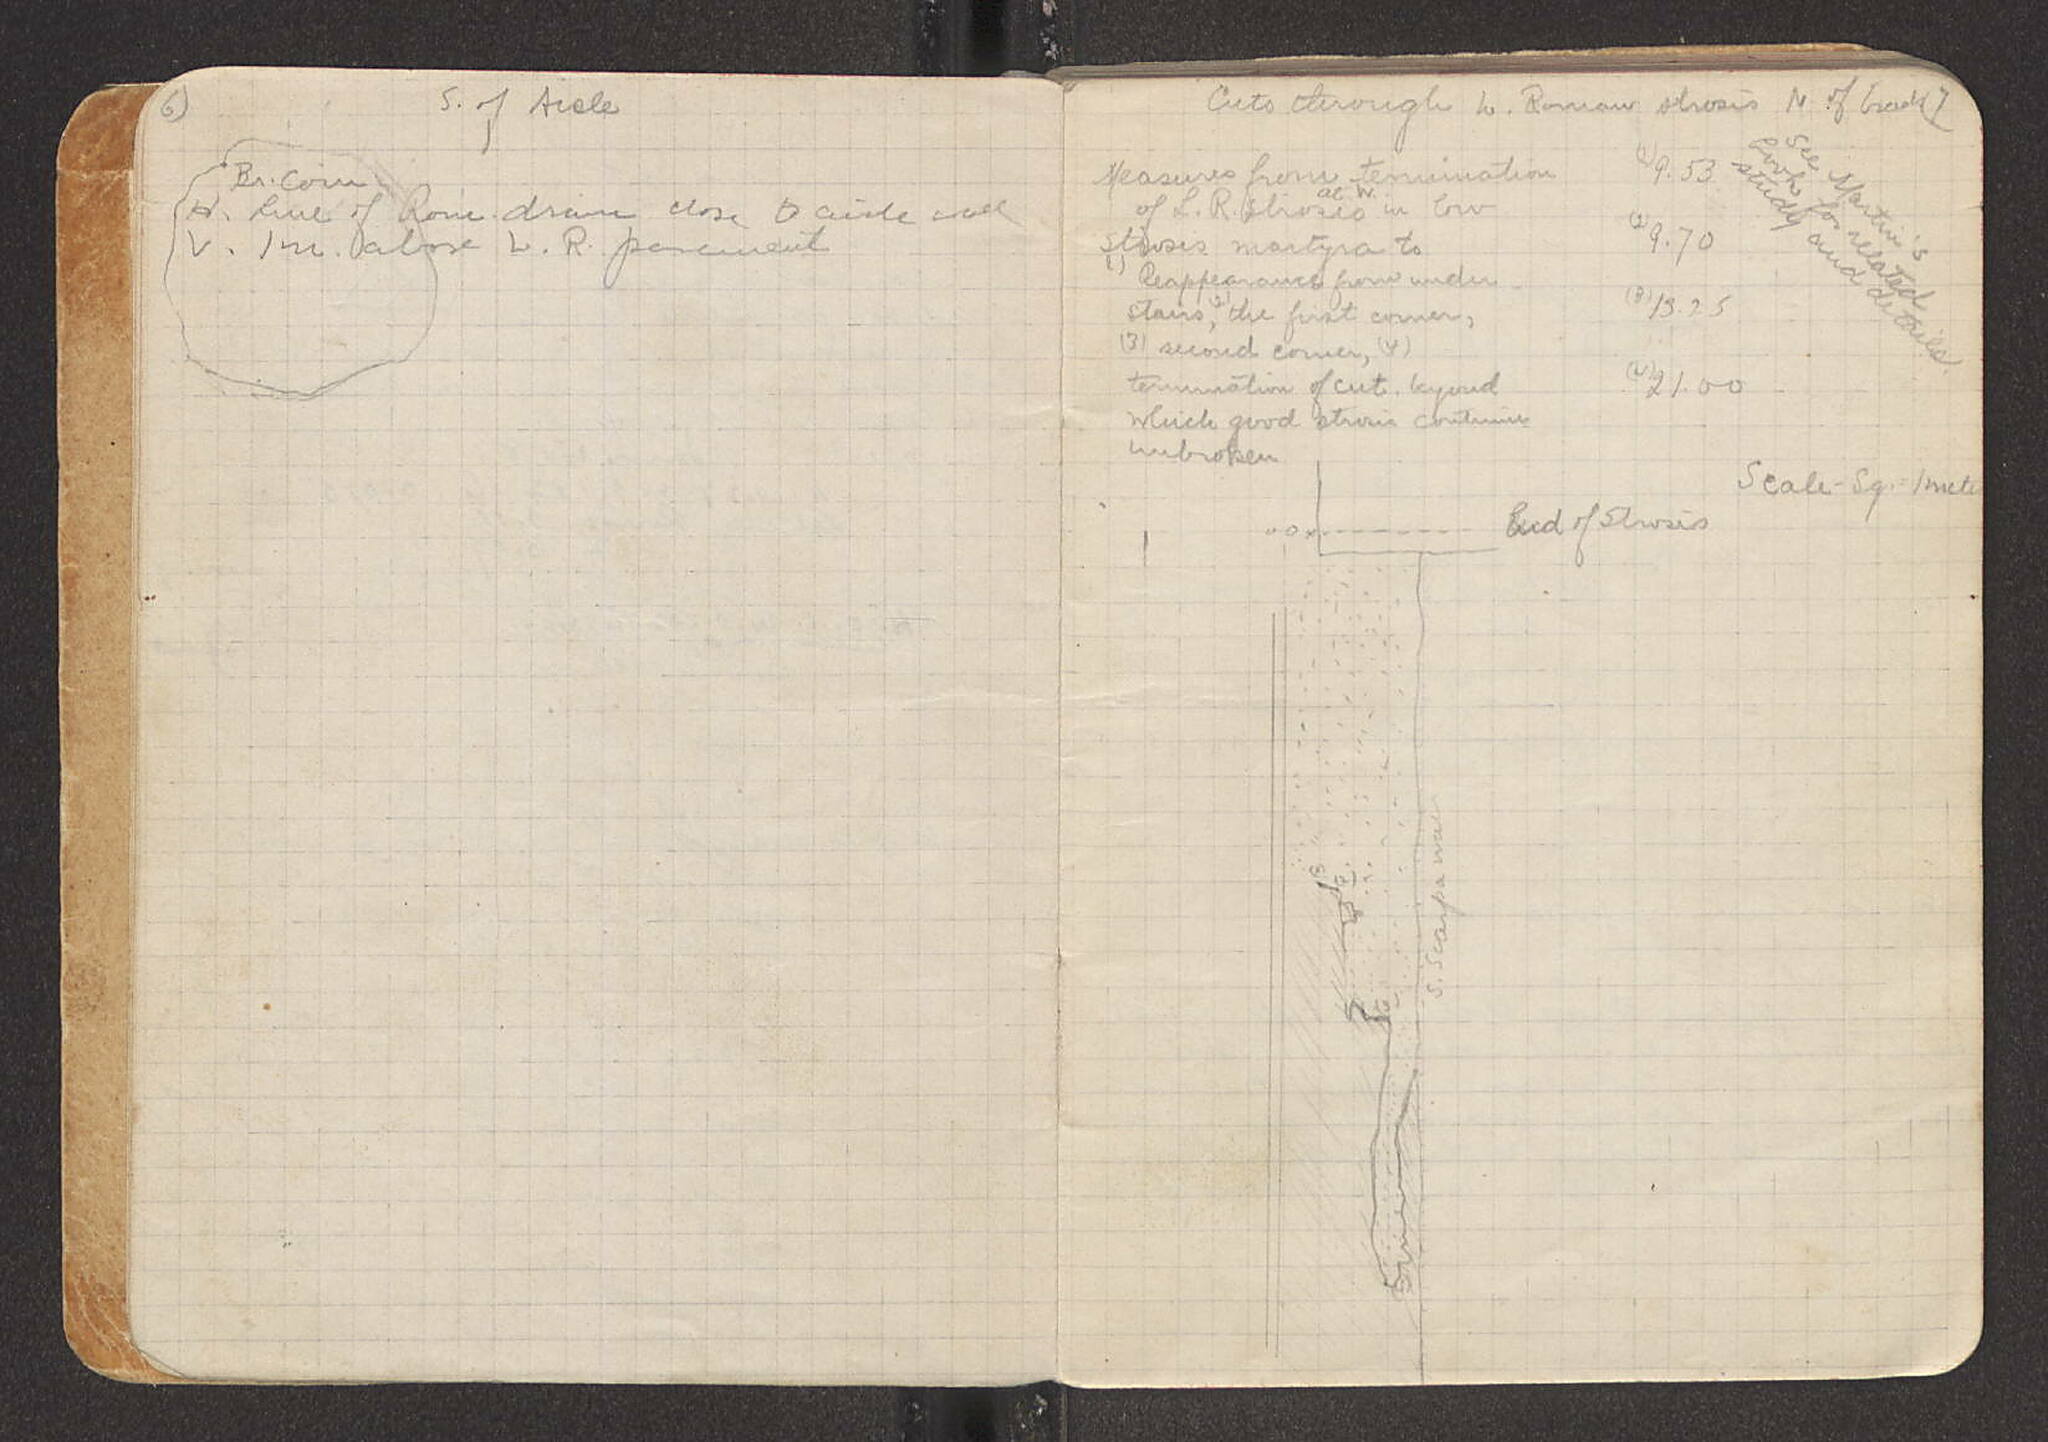 6)
S. of Aisle
Br. Coin
H. Line of Rom. drain close to aisle wall
V. 1 m. above L. R. pavement
Cuts through L. Roman strosis N of
7
Measures from termination
at W.
of L. R. strosis in low
strosis martyra to
(1) Reappearance from under
stairs, (2) the first corner,
(3) second corner, (4)
termination of cut beyond
which good strosis continues
unbroken
(1) 9.53
(2) 9.70
(3) 13.25
(4) 21.00
See Martin's
book for related
study and details.
Scale - Sq. = 1 mete
End of Strosis
S. Scarpa wall